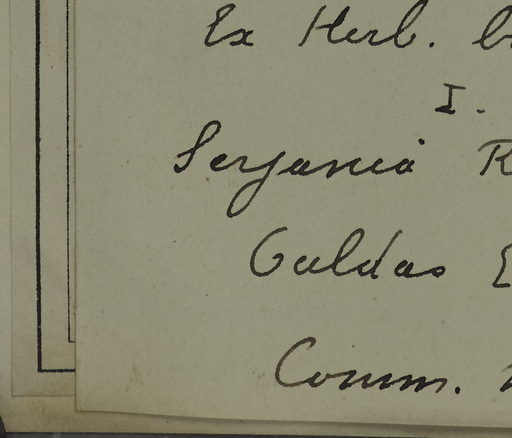 Ex Herb. b
I.
Serjania R
Caldas E
Comm.